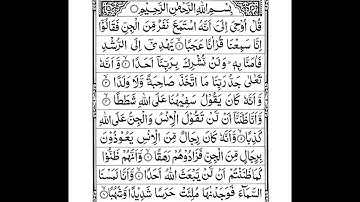 بِسْمِ اللهِ الرَّحْمٰنِ الرَّحِيْمِ
قُلْ اُوْحِيَ اِلَيَّ اَنَّهُ اسْتَمَعَ نَفَرٌ مِّنَ الْجِنِّ فَقَالُوْۤا
اِنَّا سَمِعْنَا قُرْاٰنًا عَجَبًا ۙ۝ يَّهْدِيْۤ اِلَى الرُّشْدِ
فَاٰمَنَّا بِهٖ ؕ وَلَنْ نُّشْرِكَ بِرَبِّنَاۤ اَحَدًا ۙ۝ وَّاَنَّهٗ
تَعٰلٰى جَدُّ رَبِّنَا مَا اتَّخَذَ صَاحِبَةً وَّلَا وَلَدًا ۙ۝
وَّاَنَّهٗ كَانَ يَقُوْلُ سَفِيْهُنَا عَلَى اللهِ شَطَطًا ۙ۝
وَّاَنَّا ظَنَنَّاۤ اَنْ لَّنْ تَقُوْلَ الْاِنْسُ وَالْجِنُّ عَلَى اللهِ
كَذِبًا ۙ۝ وَّاَنَّهٗ كَانَ رِجَالٌ مِّنَ الْاِنْسِ يَعُوْذُوْنَ
بِرِجَالٍ مِّنَ الْجِنِّ فَزَادُوْهُمْ رَهَقًا ۙ۝ وَّاَنَّهُمْ ظَنُّوْا
كَمَا ظَنَنْتُمْ اَنْ لَّنْ يَّبْعَثَ اللهُ اَحَدًا ۙ۝ وَّاَنَّا لَمَسْنَا
السَّمَآءَ فَوَجَدْنٰهَا مُلِئَتْ حَرَسًا شَدِيْدًا وَّشُهُبًا ۙ۝